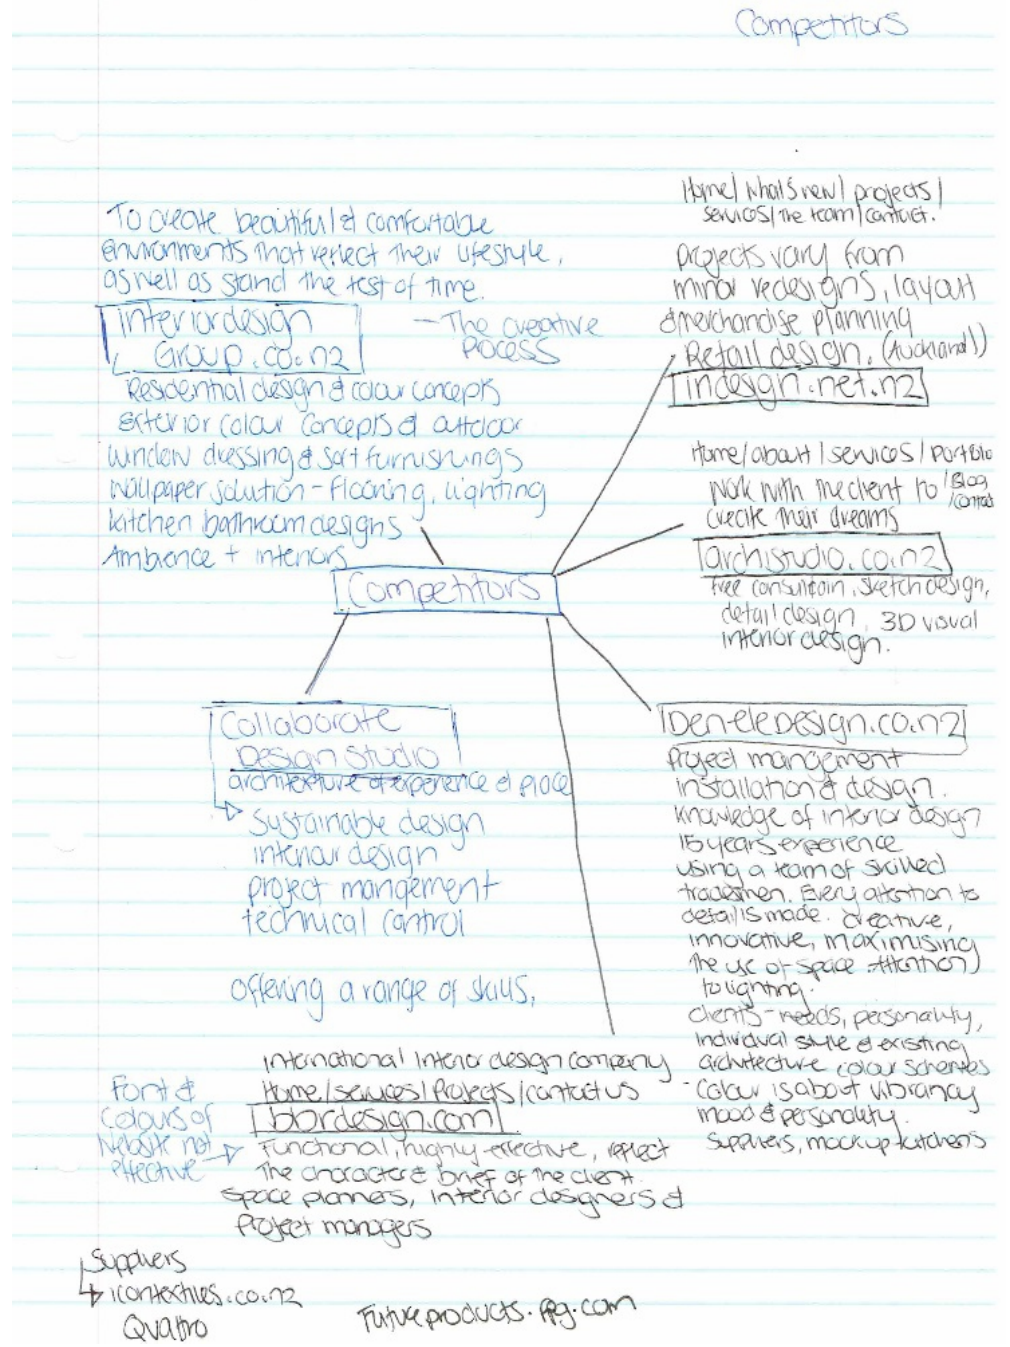 Competitors
To create beautiful & comfortable
environments that reflect their lifestyle,
as well as stand the test of time.
interiordesign
Group.co.nz
- The creative
process
Residential design & colour concepts
exterior colour concepts & outdoor
window dressing & soft furnishings
wallpaper solution - flooring, lighting
kitchen bathroom designs
Ambience + interiors
Home/what's new/projects/
services/the team/contact.
projects vary from
minor redesigns, layout
& merchandise planning
Retail design. (Auckland)
indesign.net.nz
Home/about/services/portfolio
/Blog
/contact
work with the client to
create their dreams
archistudio.co.nz
free consultain, sketch design,
detail design, 3D visual
interior design.
Competitors
Collaborate
Design Studio
architexture of experience & place
Sustainable design
interiour design
project mangement
technical control
offering a range of skills,
Den-eleDesign.co.nz
Project management
installation & design.
knowledge of interior design
15 years experience
using a team of skilled
tradesmen. Every attention to
detail is made. creative,
innovative, maximising
the use of space attention
to lighting.
clients - needs, personality,
individual style & existing
architecture colour schemes
- colour is about vibrancy
mood & personality.
suppliers, mockup kitchens
International Interior design company
Home/services/Projects/contact us
design.com
Functional, highly effective, reflect
the character & brief of the client.
space planners, interior designers &
Project managers
Font &
Colours of
Website not
effective
Suppliers
icontextiles.co.nz
Quattro
Futureproducts.ppg.com